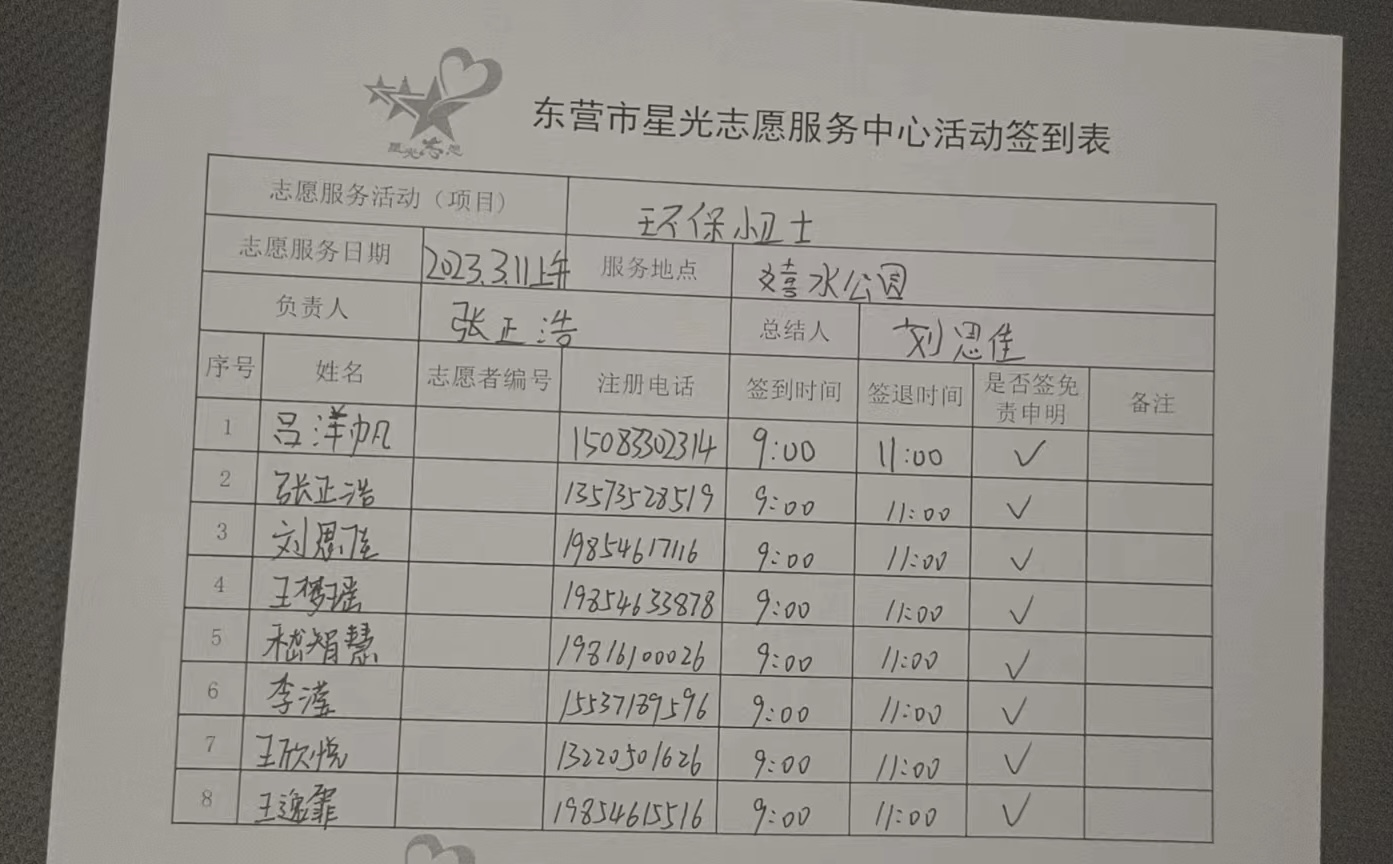 星光志愿
东营市星光志愿服务中心活动签到表
志愿服务活动（项目） 环保小卫士
志愿服务日期 2023.3.11上午 服务地点 嬉水公园
负责人 张正浩 总结人 刘思佳
序号 姓名 志愿者编号 注册电话 签到时间 签退时间 是否签免责申明 备注
1 吕洋帆 15083302314 9:00 11:00 ✓
2 张正浩 13573528519 9:00 11:00 ✓
3 刘思佳 19854617116 9:00 11:00 ✓
4 王梦瑶 19854633878 9:00 11:00 ✓
5 嵇智慧 19816100026 9:00 11:00 ✓
6 李滢 15537189596 9:00 11:00 ✓
7 王欣悦 13220501626 9:00 11:00 ✓
8 王逸霏 19854615516 9:00 11:00 ✓